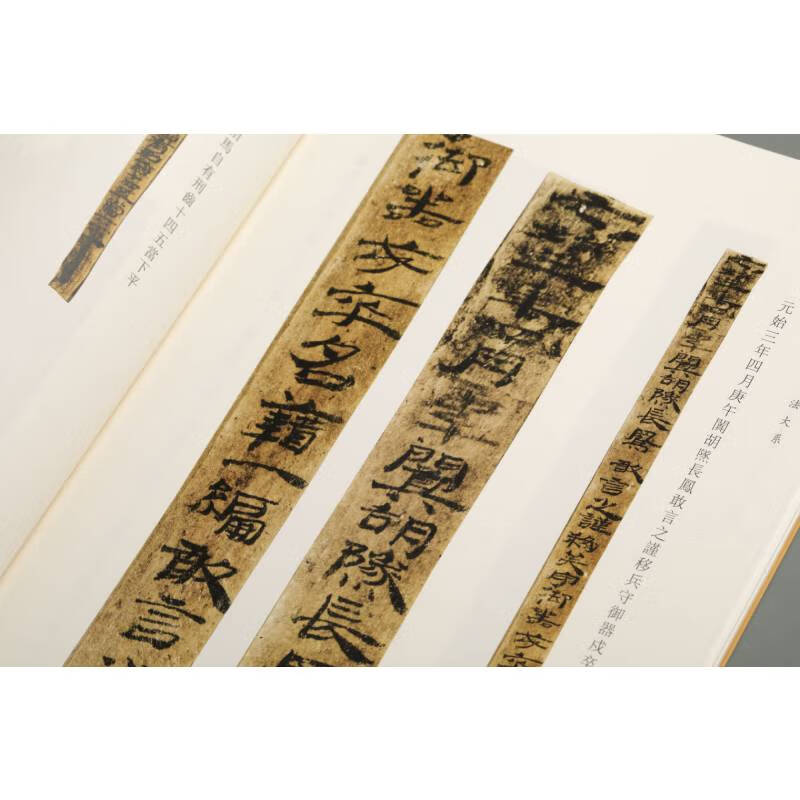 法大系
元始三年四月庚午闐胡隧長鳳敢言之謹移兵守御器戍卒
元始三年四月庚午闐胡隧長鳳敢言之謹移兵守御器戍卒
元始三年四月庚午闐胡隧長
御器戍卒名籍一編敢言
馬自有刑齒十四五當下平